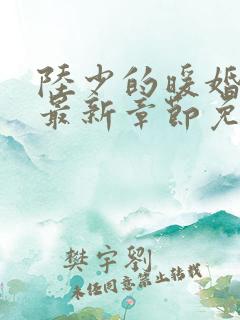 陸少的暖婚
最新章節免
樊宇劉
未經同意禁止轉載